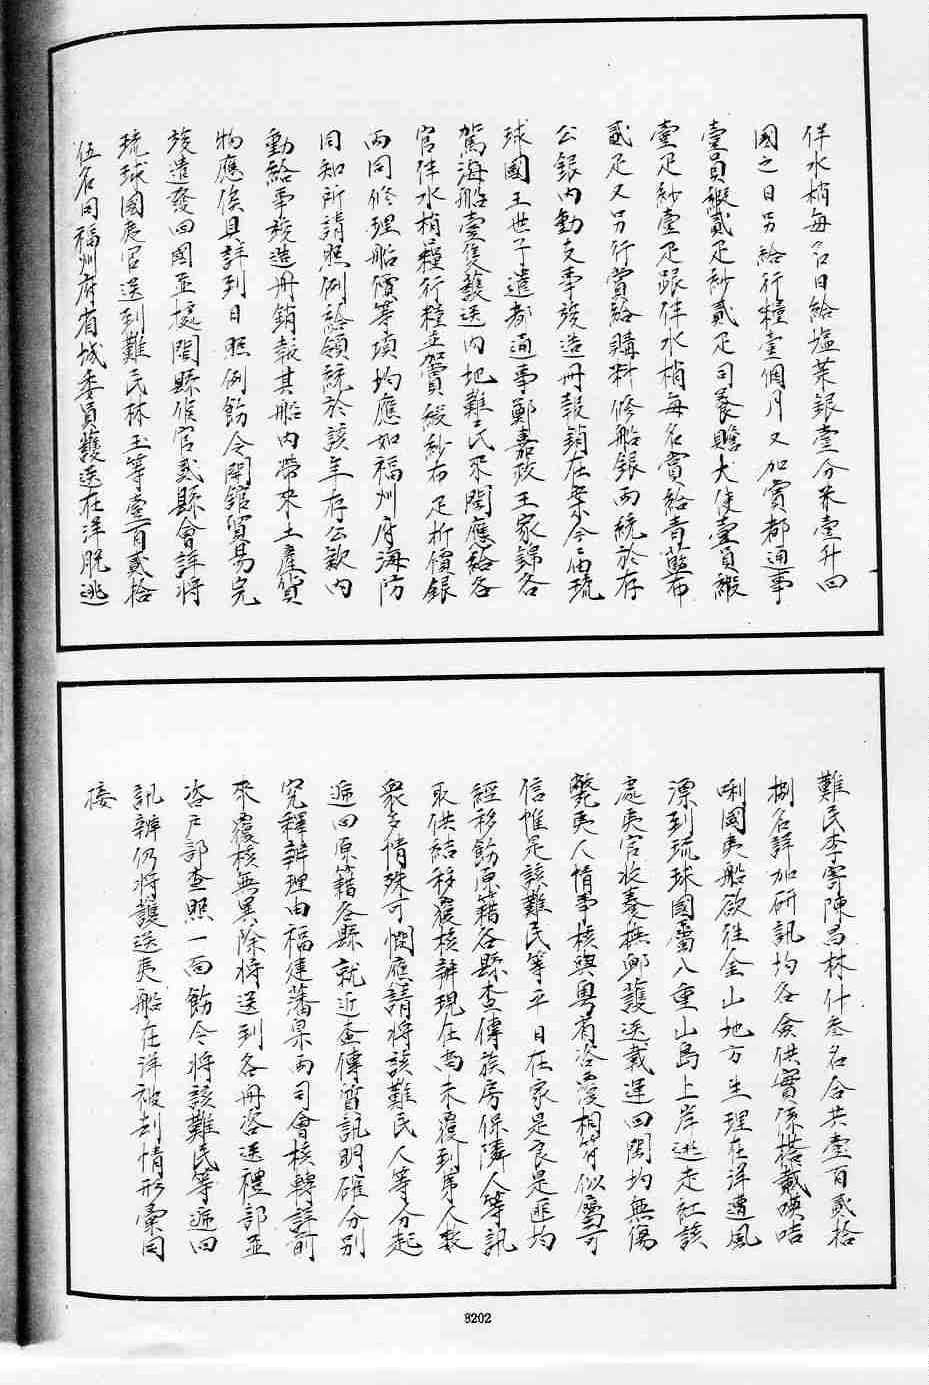 伴水梢每名日給塩菜銀壹分米壹升回
國之日另給行糧壹個月又加賞都通事
壹員緞貳疋紗貳疋司養贍大使壹員緞
壹疋紗壹疋跟伴水梢每名賞給青藍布
貳疋又另行賞給購料修船銀兩統於存
公銀內動支事竣造冊報銷在案今伯琉
球國王世子遣都通事鄭嘉政王家錦各
駕海船壹隻護送內地難民來閩應給各
官伴水梢糧行糧並加賞緞紗布疋折價銀
兩同修理船價等項均應如福州府海防
同知所請照例給領統於該年存公款內
動給事竣造冊銷報其船內帶來土產貨
物應俟具詳到日照例飭令開館貿易完
竣遣發回國並據閩縣侯官貳縣會詳將
琉球國夷官送到難民林玉等壹百貳拾
伍名同福州府省城委員護送在洋脫逃
難民李寄陳昌林什叁名合共壹百貳拾
捌名詳加研訊均各僉供實係搭載𠸄咭
唎國夷船欲往金山地方生理在洋遭風
漂到琉球國屬八重山島上岸逃走社該
處夷官收養撫卹護送載運回閩均無傷
斃夷人情事核與粵省咨覆相符似屬可
信惟是該難民等平日在家是良是匪均
經移飭原籍各縣查傳族房保隣人等訊
取供結移覆核辦現在尚未覆到第人數
衆多情殊可憫應請將該難民人等分起
遞回原籍各縣就近查傳質訊明確分別
究釋辦理由福建藩臬兩司會核轉詳前
來覆核無異除將送到各冊咨送禮部並
咨户部查照一面飭令將該難民等遞回
訊辦仍將護送夷船在洋被刦情形彙同
接
8202